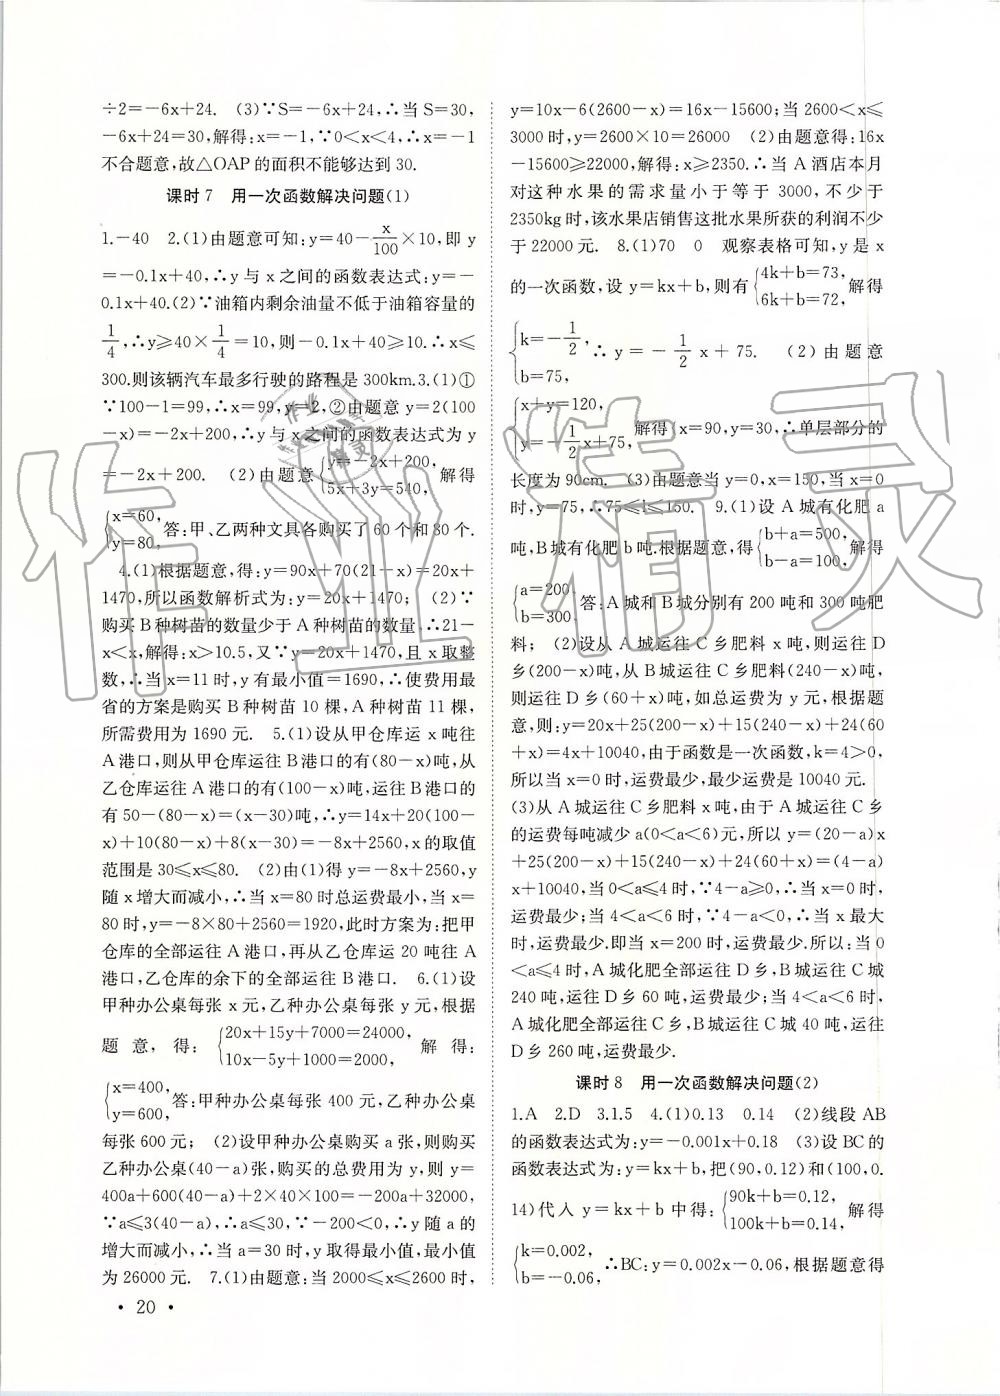 ÷2=-6x+24. (3)∵S=-6x+24,∴当 S=30,
-6x+24=30,解得:x=-1,∵0<x<4,∴x=-1
不合题意,故△OAP的面积不能够达到30.
课时7 用一次函数解决问题(1)
1.-40 2.(1)由题意可知:y=40-x/100×10,即 y
=-0.1x+40,∴y与x之间的函数表达式:y=-
0.1x+40.(2)∵油箱内剩余油量不低于油箱容量的
1/4,∴y≥40×1/4=10,则-0.1x+40≥10.∴x≤
300.则该辆汽车最多行驶的路程是300km.3.(1)①
∵100-1=99,∴x=99,y=2,②由题意 y=2(100
-x)=-2x+200,∴y与x之间的函数表达式为 y
=-2x+200. (2)由题意{y=-2x+200, 5x+3y=540, 解得
{x=60, y=80, 答:甲、乙两种文具各购买了60个和80个.
4.(1)根据题意,得:y=90x+70(21-x)=20x+
1470,所以函数解析式为:y=20x+1470; (2)∵
购买B种树苗的数量少于A种树苗的数量,∴21-
x<x,解得:x>10.5,又∵y=20x+1470,且x取整
数,∴当x=11时,y有最小值=1690,∴使费用最
省的方案是购买B种树苗10棵,A种树苗11棵,
所需费用为1690元. 5.(1)设从甲仓库运x吨往
A港口,则从甲仓库运往B港口的有(80-x)吨,从
乙仓库运往A港口的有(100-x)吨,运往B港口的
有50-(80-x)=(x-30)吨,∴y=14x+20(100-
x)+10(80-x)+8(x-30)=-8x+2560,x的取值
范围是30≤x≤80. (2)由(1)得y=-8x+2560,y
随x增大而减小,∴当x=80时总运费最小,当x=
80时,y=-8×80+2560=1920,此时方案为:把甲
仓库的全部运往A港口,再从乙仓库运20吨往A
港口,乙仓库的余下的全部运往B港口. 6.(1)设
甲种办公桌每张x元,乙种办公桌每张y元,根据
题意,得:{20x+15y+7000=24000, 10x-5y+1000=2000, 解得:
{x=400, y=600, 答:甲种办公桌每张400元,乙种办公桌
每张600元; (2)设甲种办公桌购买a张,则购买
乙种办公桌(40-a)张,购买的总费用为y,则y=
400a+600(40-a)+2×40×100=-200a+32000,
∵a≤3(40-a),∴a≤30,∵-200<0,∴y随a的
增大而减小,∴当a=30时,y取得最小值,最小值
为26000元. 7.(1)由题意:当2000≤x≤2600时,
y=10x-6(2600-x)=16x-15600;当2600<x≤
3000时,y=2600×10=26000 (2)由题意得:16x
-15600≥22000,解得:x≥2350.∴当A酒店本月
对这种水果的需求量小于等于3000,不少于
2350kg时,该水果店销售这批水果所获的利润不少
于22000元. 8.(1)70 0 观察表格可知,y是x
的一次函数,设y=kx+b,则有{4k+b=73, 6k+b=72, 解得
{k=-1/2, b=75, ∴y=-1/2x+75. (2)由题意
{x+y=120, y=-1/2x+75, 解得{x=90,y=30,∴单层部分的
长度为90cm. (3)由题意当y=0,x=150,当x=0
时,y=75,∴75≤l≤150. 9.(1)设A城有化肥a
吨,B城有化肥b吨.根据题意,得{b+a=500, b-a=100, 解得
{a=200, b=300. 答:A城和B城分别有200吨和300吨肥
料; (2)设从A城运往C乡肥料x吨,则运往D
乡(200-x)吨,从B城运往C乡肥料(240-x)吨,
则运往D乡(60+x)吨,如总运费为y元,根据题
意,则:y=20x+25(200-x)+15(240-x)+24(60
+x)=4x+10040,由于函数是一次函数,k=4>0,
所以当x=0时,运费最少,最少运费是10040元.
(3)从A城运往C乡肥料x吨,由于A城运往C乡
的运费每吨减少a(0<a<6)元,所以y=(20-a)x
+25(200-x)+15(240-x)+24(60+x)=(4-a)
x+10040,当0<a≤4时,∵4-a≥0,∴当x=0时,
运费最少;当4<a<6时,∵4-a<0,∴当x最大
时,运费最少.即当x=200时,运费最少.所以:当0
<a≤4时,A城化肥全部运往D乡,B城运往C城
240吨,运往D乡60吨,运费最少;当4<a<6时,
A城化肥全部运往C乡,B城运往C城40吨,运往
D乡260吨,运费最少.
课时8 用一次函数解决问题(2)
1.A 2.D 3.1.5 4.(1)0.13 0.14 (2)线段AB
的函数表达式为:y=-0.001x+0.18 (3)设BC的
函数表达式为:y=kx+b,把(90,0.12)和(100,0.
14)代入y=kx+b中得:{90k+b=0.12, 100k+b=0.14, 解得
{k=0.002, b=-0.06, ∴BC:y=0.002x-0.06,根据题意得
• 20 •
作业精灵